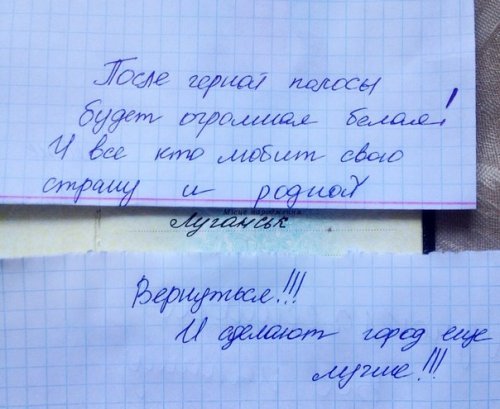 После черной полосы
будет огромная белая!
И все кто любит свою
страну и родной
Місце народження
Луганськ
Вернуться!!!
И сделают город еще
лучше!!!